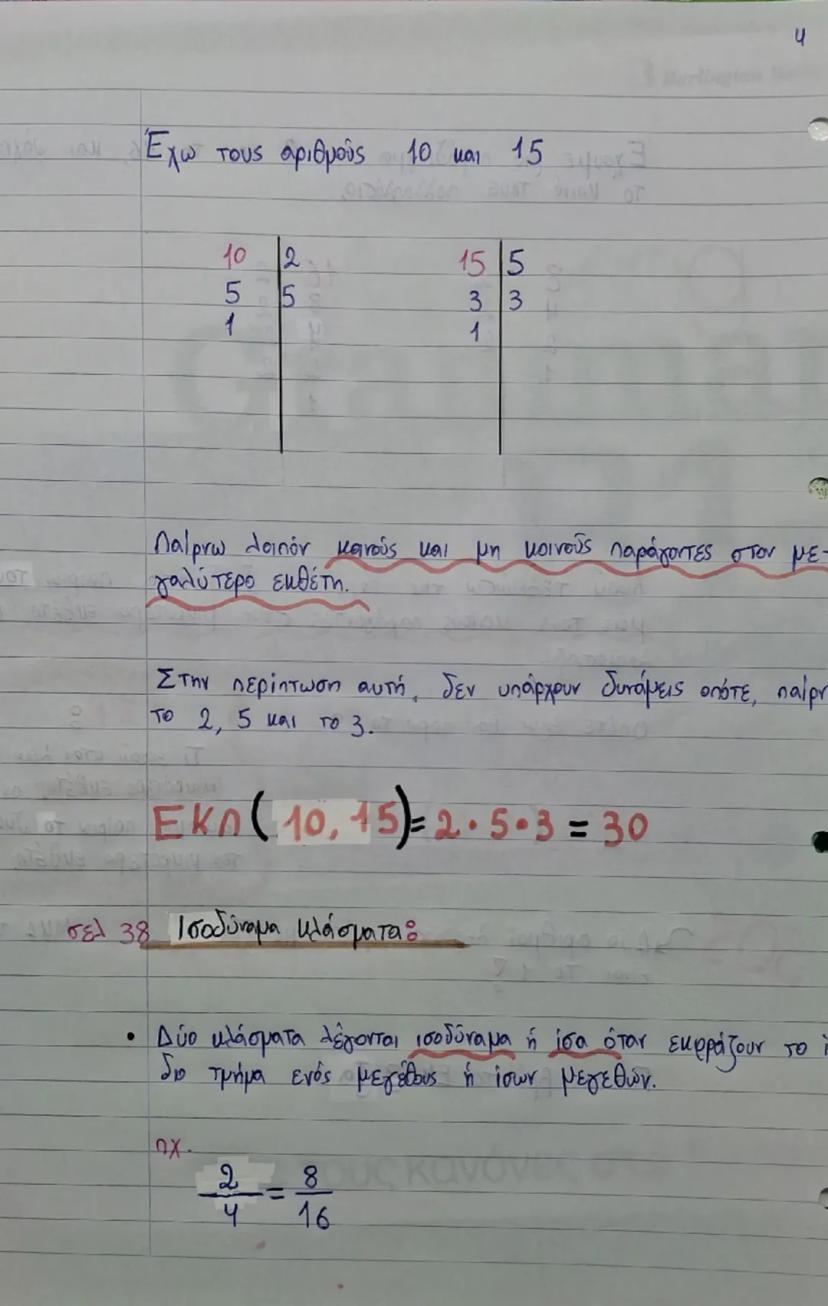 4
Έχω τους αριθμούς 10 και 15
10 | 2
5 | 5
1
15 | 5
3 | 3
1
Παίρνω λοιπόν κοινούς και μη κοινούς παράγοντες στον με-
γαλύτερο εκθέτη.
Στην περίπτωση αυτή, δεν υπάρχουν δυνάμεις οπότε, παίρν
το 2, 5 και το 3.
ΕΚΠ(10, 15)= 2 · 5 · 3 = 30
σελ 38 Ισοδύναμα κλάσματα:
• Δύο κλάσματα λέγονται ισοδύναμα ή ίσα όταν εκφράζουν το ί
διο τμήμα ενός μεγέθους ή ίσων μεγεθών.
πχ.
2/4 = 8/16